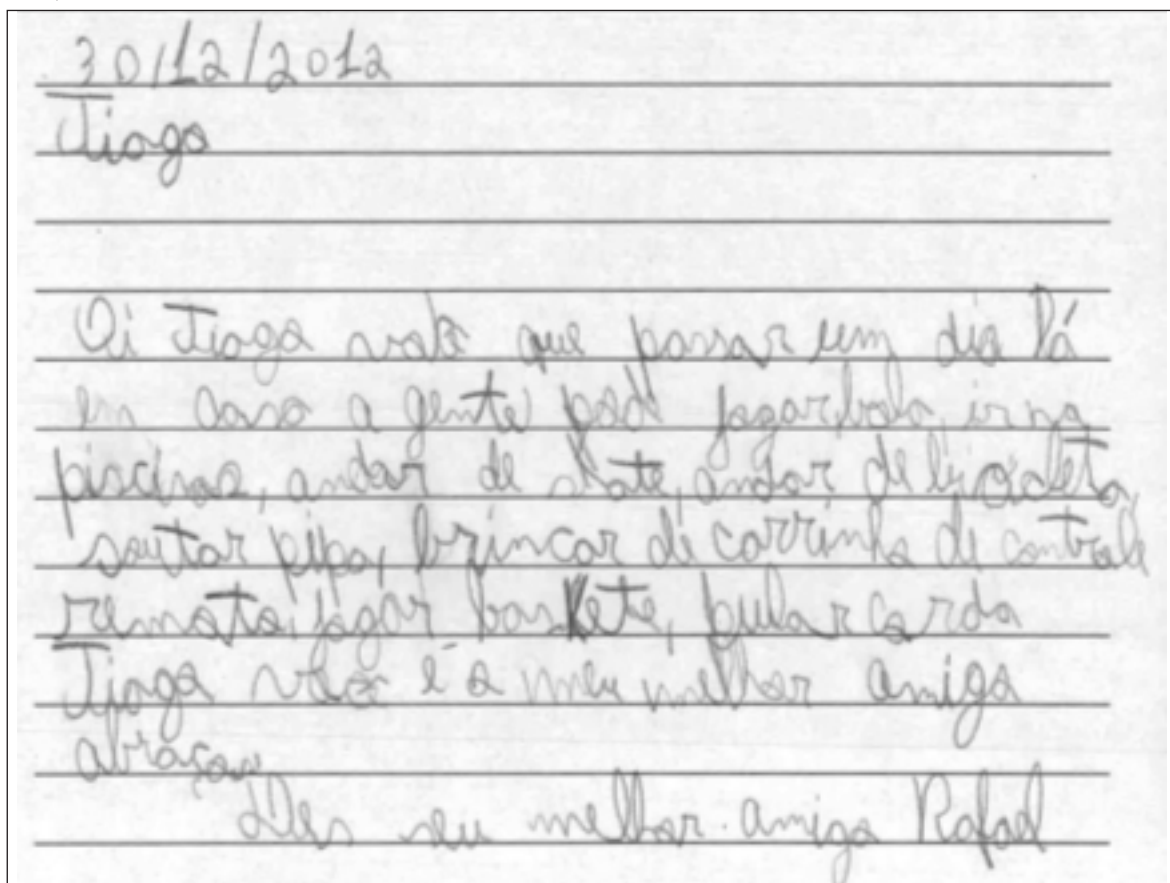 30/12/2012
Tiago
Oi Tiago você que passar um dia lá
em casa a gente pode jogar bola, ir na
piscina, andar de skate, andar de bicicleta,
soutar pipa, brincar de carrinho de controle
remoto, jogar baskete, pular corda
Tiago você é o meu melhor amigo
abraços
seu melhor amigo Rafael